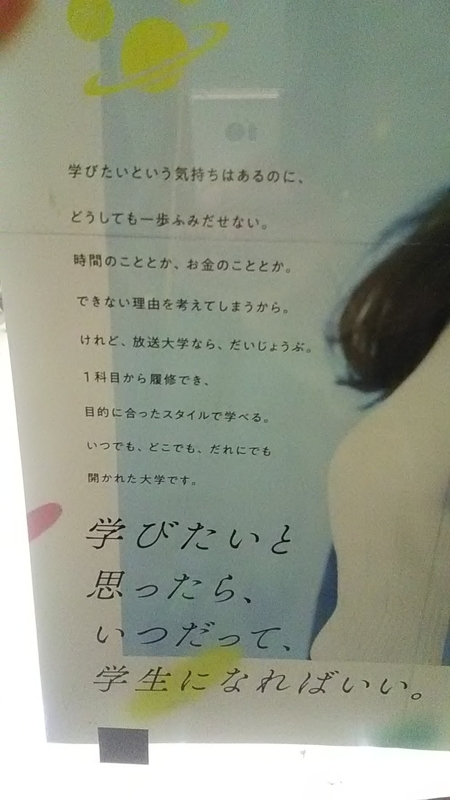 学びたいという気持ちはあるのに、
どうしても一歩ふみだせない。
時間のこととか、お金のこととか。
できない理由を考えてしまうから。
けれど、放送大学なら、だいじょうぶ。
1科目から履修でき、
目的に合ったスタイルで学べる。
いつでも、どこでも、だれにでも
開かれた大学です。
学びたいと
思ったら、
いつだって、
学生になればいい。